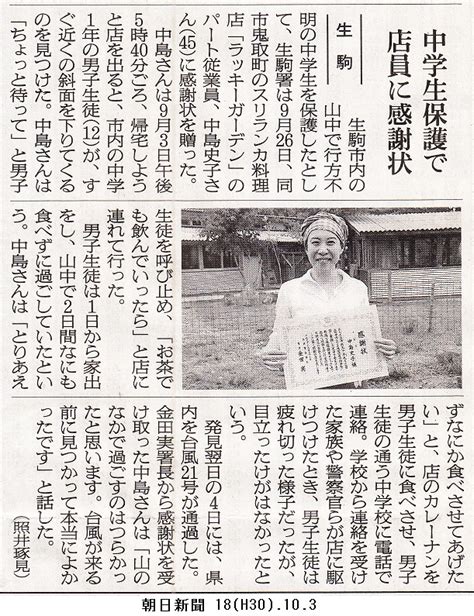 中学生保護で
店員に感謝状
生駒
生駒市内の
山中で行方不
明の中学生を保護したとし
て、生駒署は9月26日、同
市鬼取町のスリランカ料理
店「ラッキーガーデン」の
パート従業員、中島史子さ
ん(45)に感謝状を贈った。
中島さんは9月3日午後
5時40分ごろ、帰宅しよう
と店を出ると、市内の中学
1年の男子生徒(12)が、す
ぐ近くの斜面を下りてくる
のを見つけた。中島さんは
「ちょっと待って」と男子
生徒を呼び止め、「お茶で
も飲んでいったら」と店に
連れて行った。
男子生徒は1日から家出
をし、山中で2日間なにも
食べずに過ごしていたとい
う。中島さんは「とりあえ
感謝状
ずなにか食べさせてあげた
い」と、店のカレーナンを
男子生徒に食べさせ、男子
生徒の通う中学校に電話で
連絡。学校から連絡を受け
た家族や警察官らが店に駆
けつけたとき、男子生徒は
疲れ切った様子だったが、
目立ったけがはなかったと
いう。
発見翌日の4日には、県
内を台風21号が通過した。
金田実署長から感謝状を受
け取った中島さんは「山の
なかで過ごすのはつらかっ
たと思います。台風が来る
前に見つかって本当によか
ったです」と話した。
(照井琢見)
朝日新聞 18(H30).10.3